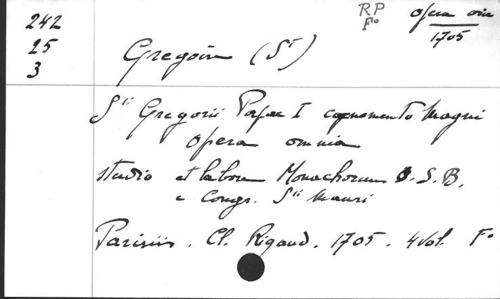 242
25
3
RP
F°
opera om
1705
Gregoire (St)
Sti Gregorii Papae I cognomento Magni
opera omnia
studio et labore Monachorum O.S.B.
e Congr. Sti Mauri
Parisiis. Cl. Rigaud. 1705. 4 Vol. F°